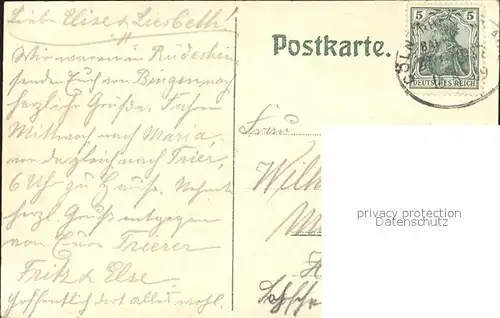 Liebe Elise & Liesbeth!
Wir waren in Rüdesheim
senden Euch von Bingen noch
herzliche Grüße. Fahren
Mittwoch nach Maria
von da gleich nach Trier,
6 Uhr zu Hause. Nehmt
herzl. Gruß entgegen
von Eure Trierer
Fritz & Else.
Hoffentlich dort alles wohl.
Postkarte.
5 5
DEUTSCHES REICH
CÖLN
Frau
Wilh
privacy protection
Datenschutz